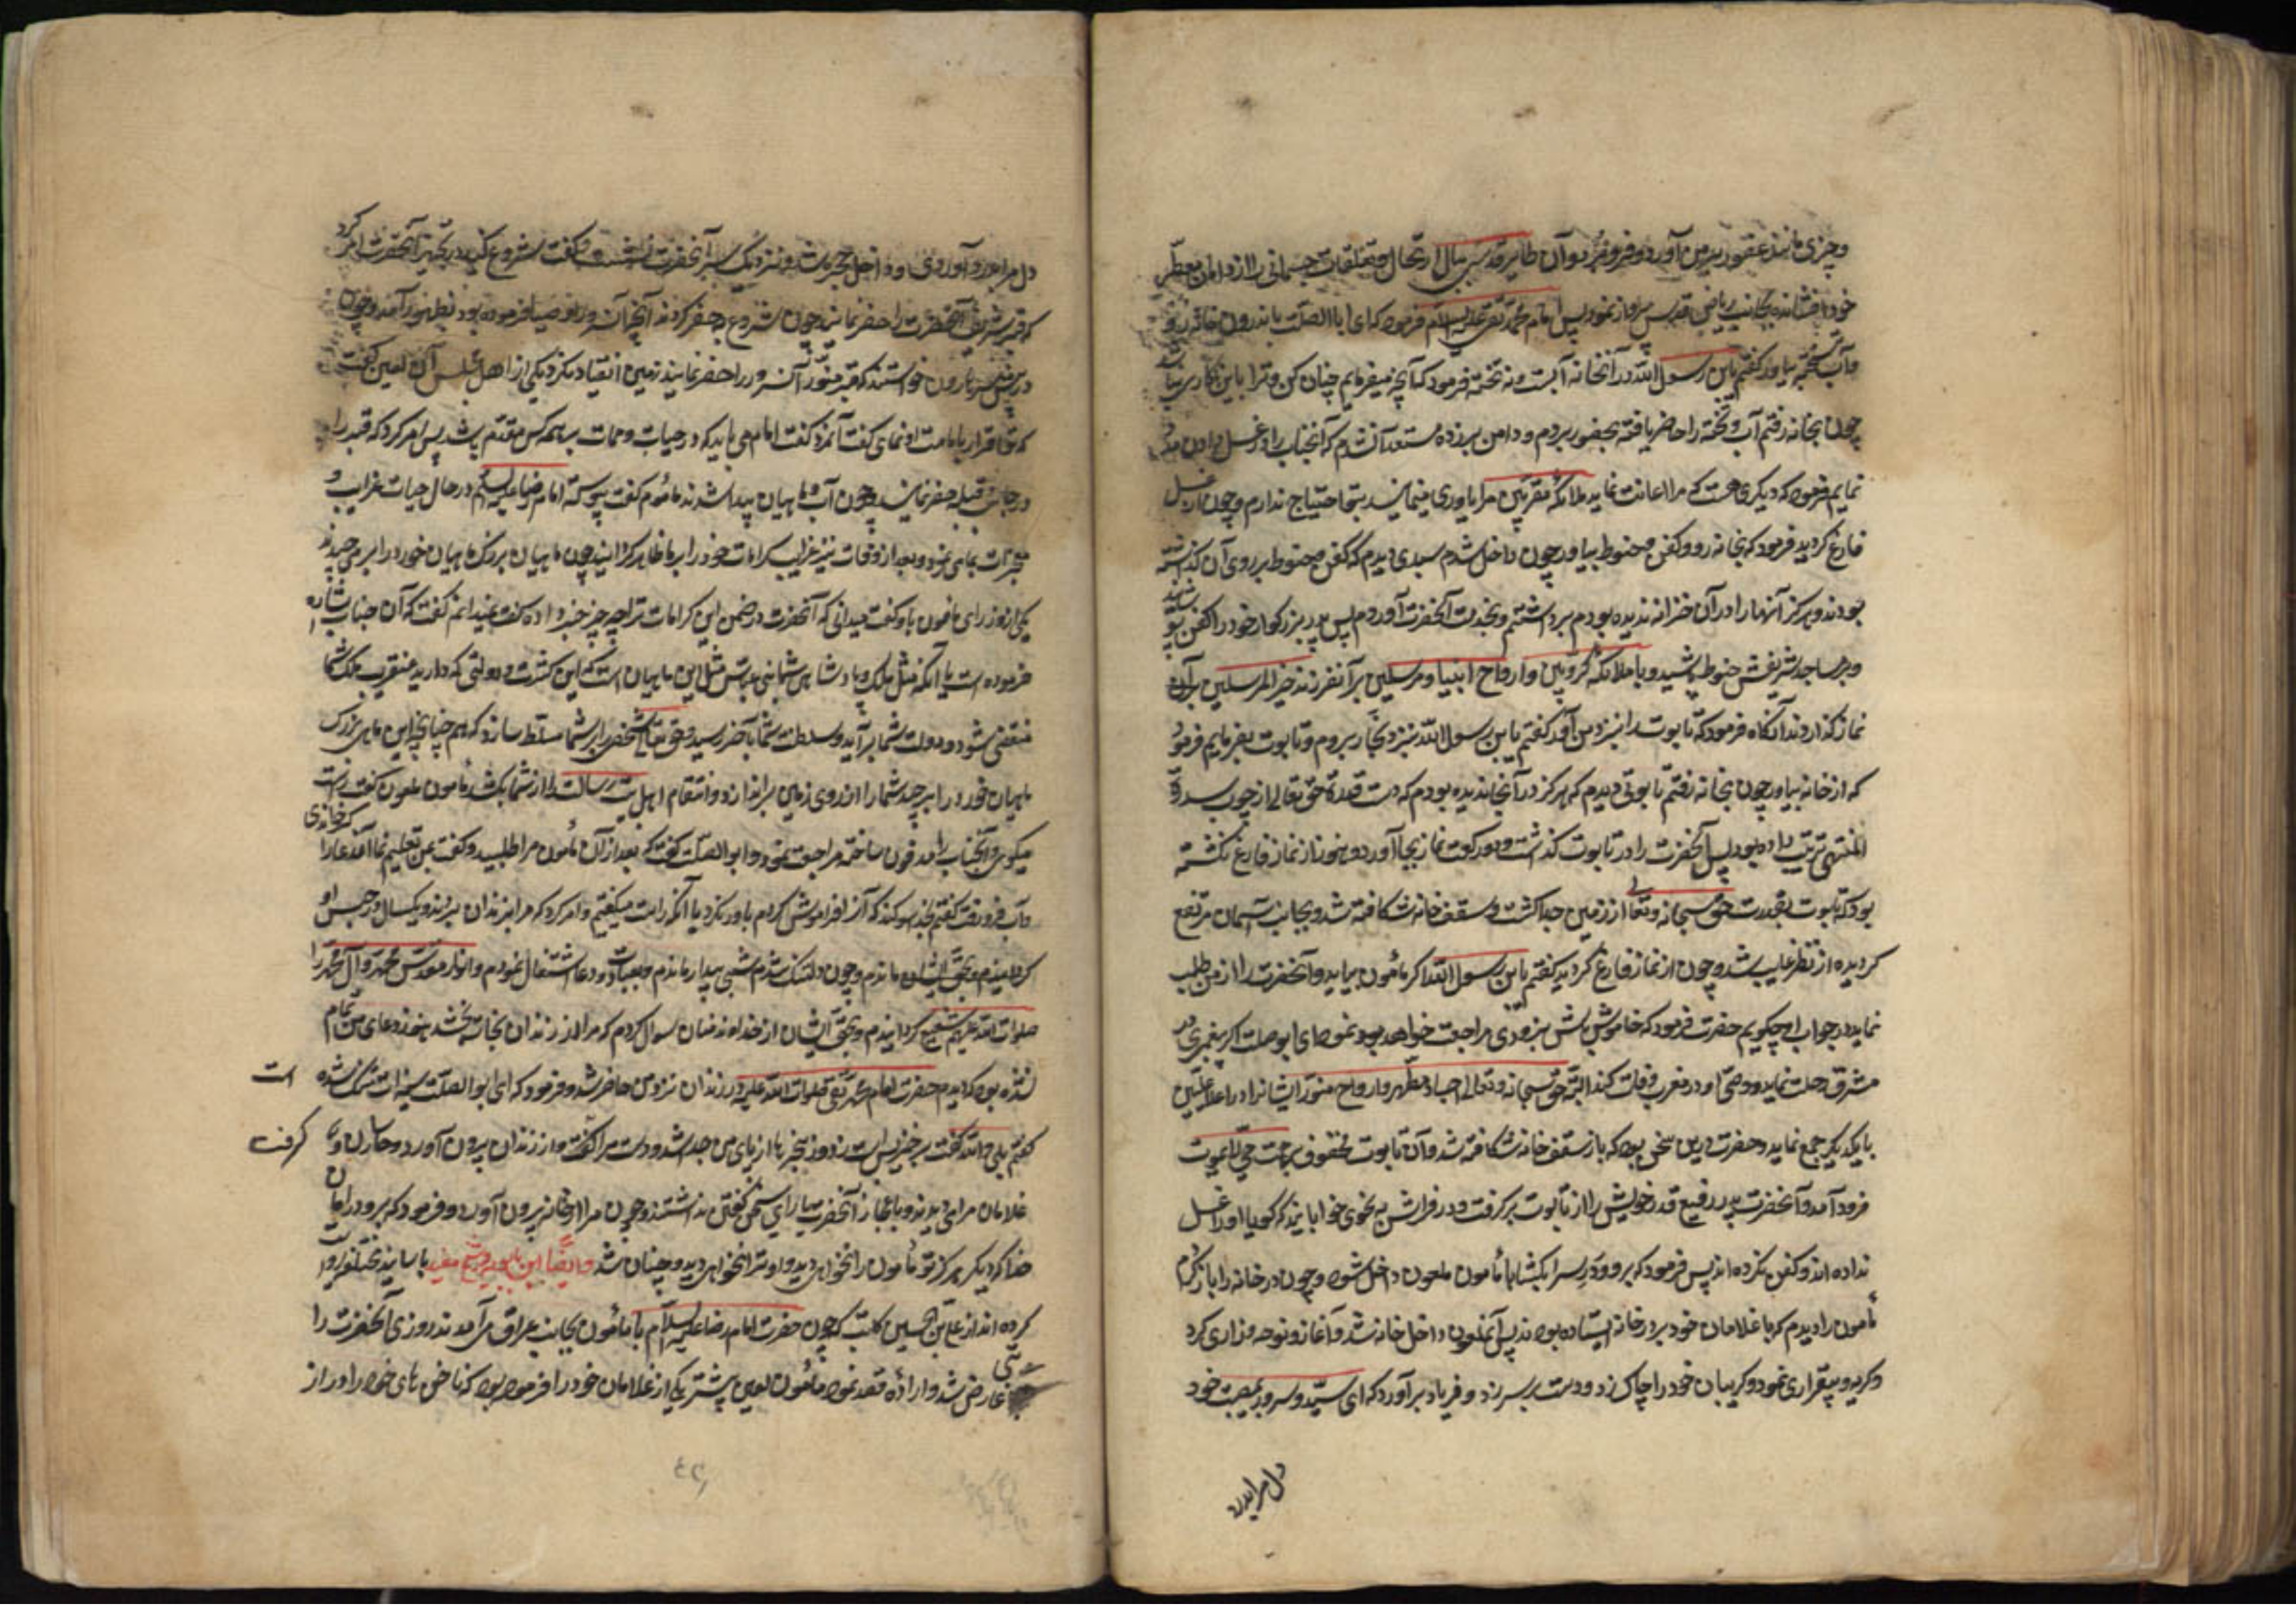 و چیزی مانند عصفور بیرون آورد و فرو برد و آن طایر قدسی ببال ارتحال و تعلقات جسمانی را از دامان مطهّر
خود افشانده بجانب ریاض قدس پرواز نمود پس امام محمد تقی علیه السلام فرمود که ای ابا الصلت باندرون خانه رو
و آب و تخته بیاور گفتم یابن رسول الله در آنخانه آبست و نه تخته فرمود که آنچه میفرمایم چنان کن و ترا باین کار
چون بخانه رفتم آب و تخته را حاضر یافته بحضور بردم و دامن بر زده مستعد آن شدم که آنجناب را در غسل دادن مدد
نمایم فرمود که دیگری هست که مرا اعانت نماید ملائکه مقربین مرا یاوری مینمایند بتو احتیاج ندارم و چون از غسل
فارغ گردید فرمود که بخانه رو و کفن و حنوط بیاور چون داخل شدم سبدی دیدم که کفن و حنوط بر روی آن گذاشته
بودند و هرگز آنها را در آن خزانه ندیده بودم برداشتم و بخدمت آنحضرت آوردم پس پدر بزرگوار خود را کفن پوشید
و بر مساجد شریفش حنوط پاشید و با ملائکه کروبین و ارواح انبیا و مرسلین بر آنفرزند خیر المرسلین
نماز گذاردند آنگاه فرمود که تابوت را بنزد من آور گفتم یابن رسول الله بنزد نجار بروم و تابوت بفرمایم فرمود
که از خانه بیاور چون بخانه رفتم تابوتی دیدم که هرگز در آنجا ندیده بودم که دست قدرة حق تعالی از چوب سدرة
المنتهی ترتیب داده بود پس آنحضرت را در تابوت گذاشت و دو رکعت نماز بجا آورد و هنوز از نماز فارغ نگشته
بود که تابوت بقدرت حق سبحانه و تعالی از زمین جدا گشت و سقف خانه شکافته شد و بجانب آسمان مرتفع
گردیده از نظر غایب شد و چون از نماز فارغ گردید گفتم یابن رسول الله اگر مأمون بیاید و آنحضرت را از من طلب
نماید در جواب او چگویم حضرت فرمود که خاموش باش بزودی مراجعت خواهد نمود ای ابو صلت اگر پیغمبری در
مشرق رحلت نماید و وصی او در مغرب وفات کند البته حق سبحانه و تعالی اجساد مطهر و ارواح منور ایشانرا در اعلا علیین
با یکدیگر جمع نماید و حضرت درین سخن بود که باز سقف خانه شکافته شد و آن تابوت محفوف برحمت حی لایموت
فرود آمد و آنحضرت پدر رفیع قدر خویش را از تابوت برگرفت و در فراش به نحوی خوابانید که گویا او را غسل
نداده اند و کفن نکرده اند پس فرمود که برو و در سرا بگشا تا مأمون ملعون داخل شود و چون در خانه را باز کردم
مأمون را دیدم که با غلامان خود بر در خانه ایستاده بودند پس آنملعون داخل خانه شد و آغاز نوحه و زاری کرد
و گریه و بیقراری نمود و گریبان خود را چاک زد و دست بر سر زد و فریاد برآورد که ای سید و سرور بمصیبت خود
دل مرا بدرد
دل مرا بدرد آوردی و داخل حجره شد و نزدیک سر آنحضرت نشست و گفت شروع کنید در تجهیز آنحضرت امر کرد
که قبر شریف آنحضرت را حفر نمایند چون شروع بحفر کردند آنچه آن سرور اوصیا فرموده بود بظهور آمد و چون
در پس سر هارون خواستند که قبر منور آنسرور را حفر نمایند زمین انقیاد نکرد یکی از اهل مجلس آن لعین گفت
که تو اقرار بامامت او نمای گفت آنمرد گفت امام می باید که در حیات و ممات بر همه کس مقدم باشد پس امر کرد که قبر را
در جانب قبله حفر نمایند و چون آب و ماهیان پیدا شدند مأمون گفت پیوسته امام رضا علیه السلام در حال حیات غرایب و
معجزات بما می نمود و بعد از وفات نیز غرایب کرامات خود را بر ما ظاهر گردانید چون ماهیان بزرگ ماهیان خورد را برمی چیدند
یکی از وزرای مأمون با و گفت میدانی که آنحضرت در ضمن این کرامات ترا چه چیز خبر داده گفت نمیدانم گفت که آن جناب اشاره
فرموده است با آنکه مثل ملک و پادشاهی شما بنی عباس مثل این ماهیان است که این کثرت و دولتی که دارید عنقریب ملک شما
منقضی شود و دولت شما برآید و سلطنت شما بآخر رسید و حق تعالی شخصی را بر شما مسلط سازد که هم چنانچه این ماهی بزرگ
ماهیان خورد را برچید شما را از روی زمین براندازد و انتقام اهل بیت رسالت را از شما بکشد مأمون ملعون گفت راست
میگوئی و آنجناب را مدفون ساخته مراجعت نمود و ابو الصلت گفت که بعد از آن مأمون مرا طلبید و گفت بمن تعلیم نما آندعا را که خواندی
و آب فرو رفت گفتم بخدا سوگند که آنرا فراموش کردم باور نکرد با آنکه راست میگفتم و امر کرد که مرا بزندان بردند و یکسال در حبس او
ماندم و چون دلتنگ شدم شبی بیدار ماندم و بعبادت و دعا اشتغال نمودم و انوار مقدس محمد و آل محمد را
صلوات الله علیهم شفیع گردانیدم و بحق ایشان از خداوند منان سوال کردم که مرا از زندان نجات بخشد هنوز دعای من تمام
نشده بود که دیدم حضرت امام محمد تقی صلوات الله علیه در زندان نزد من حاضر شد و فرمود که ای ابو الصلت سینه ات تنگ شده است
گفتم بلی و الله گفت برخیز پس زنجیرها از پای من جدا شد و دست مرا گرفت و از زندان بیرون آورد و حارسان و
غلامان مرا می دیدند و باعجاز آنحضرت یارای سخن گفتن نداشتند و چون مرا از خانه بیرون آورد و فرمود که برو در امان
خدا که دیگر هرگز تو مأمون را نخواهی دید و او ترا نخواهد دید و چنان شد و ایضا ابن بابویه و شیخ مفید باسانید مختلفه روایت
کرده اند از علی بن الحسین کاتب که چون حضرت امام رضا علیه السلام با مأمون بجانب عراق می آمدند روزی آنحضرت را
تبی عارض شد و اراده فصد نمود مأمون لعین پیشتر یکی از غلامان خود را فرموده بود که ناخن های خود را دراز